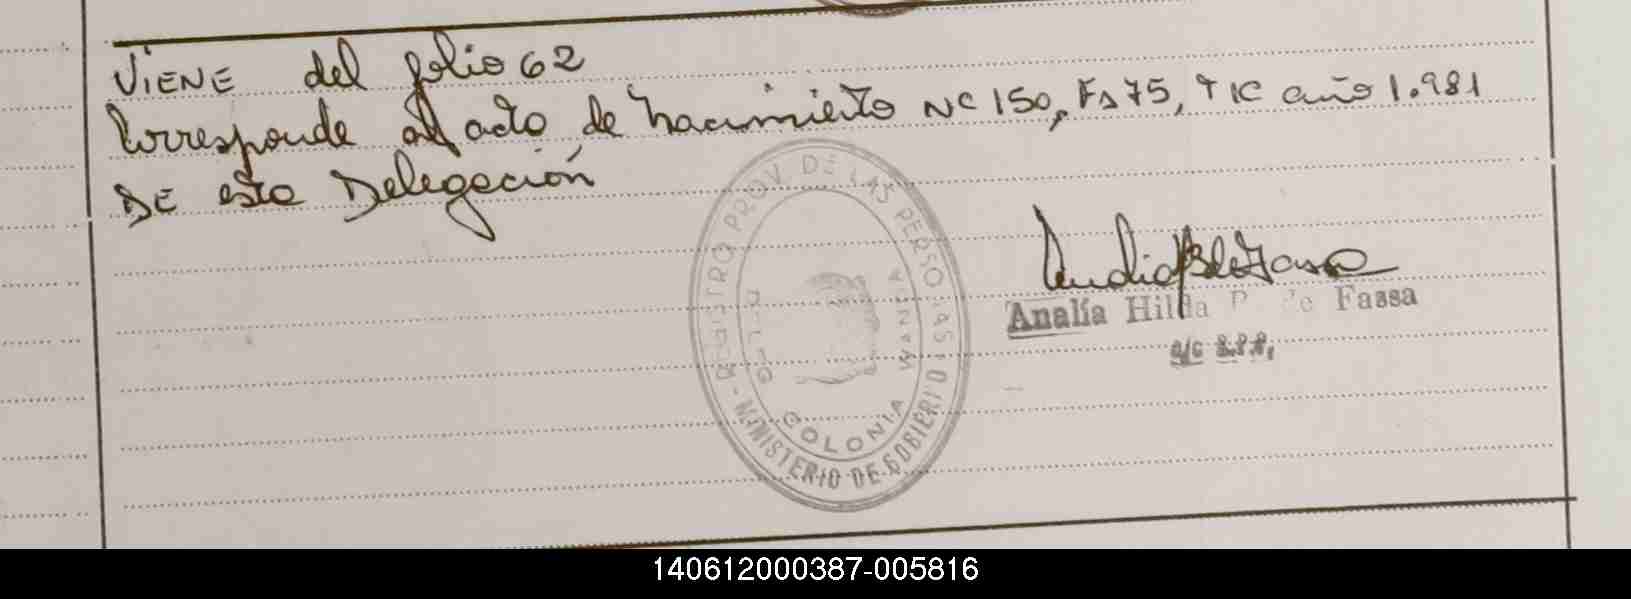 VIENE del folio 62
Corresponde al acto de nacimiento Nº 150, Fs 75, T IC año 1.981
DE esta Delegación
REGISTRO PROV. DE LAS PERSONAS
MINISTERIO DE GOBIERNO
DELEG
COLONIA
Analía Hilda de Fassa
a/c
140612000387-005816